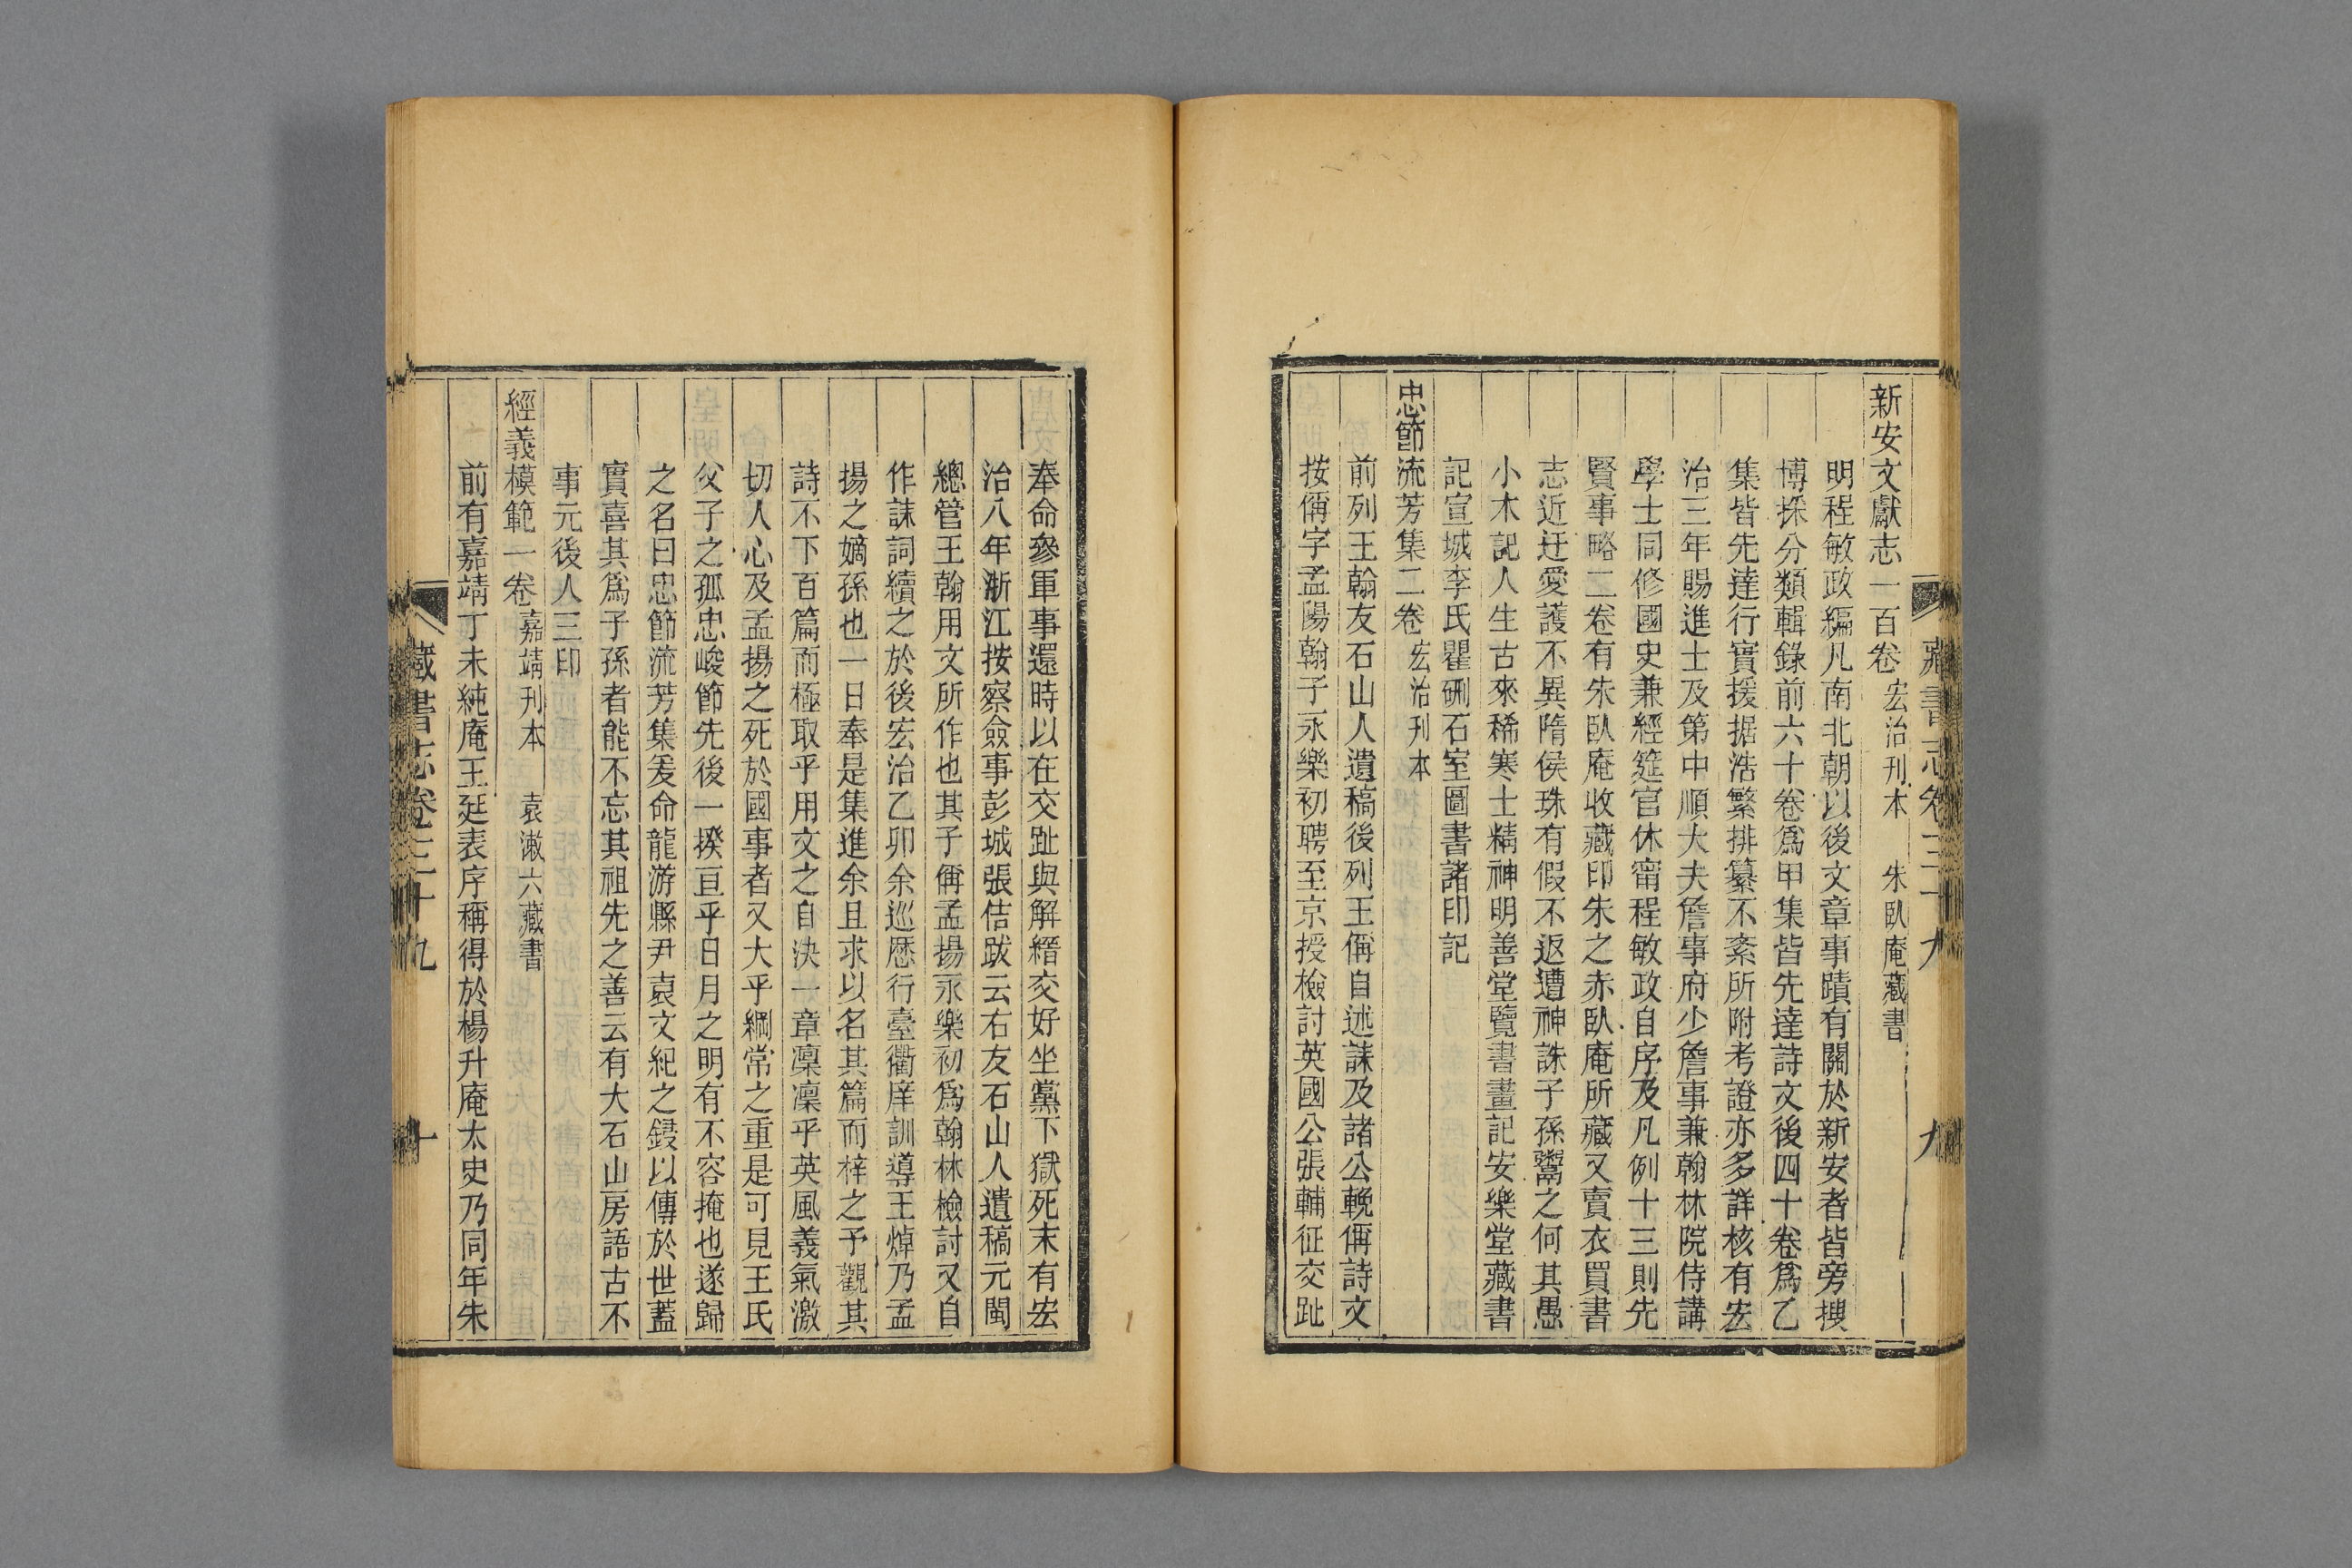 藏書志卷三十九
九
新安文獻志一百卷 宏治刊本 朱臥庵藏書
明程敏政編凡南北朝以後文章事蹟有關於新安者皆旁搜
博採分類輯錄前六十卷爲甲集皆先達詩文後四十卷爲乙
集皆先達行實援据浩繁排纂不紊所附考證亦多詳核有宏
治三年賜進士及第中順大夫詹事府少詹事兼翰林院侍講
學士同修國史兼經筵官休甯程敏政自序及凡例十三則先
賢事略二卷有朱臥庵收藏印朱之赤臥庵所藏又賣衣買書
志近迂愛護不異隋侯珠有假不返遭神誅子孫鬻之何其愚
小木記人生古來稀寒士精神明善堂覽書畫記安樂堂藏書
記宣城李氏瞿硎石室圖書諸印記
忠節流芳集二卷 宏治刊本
前列王翰友石山人遺稿後列王偁自述誄及諸公輓偁詩文
按偁字孟陽翰子永樂初聘至京授檢討英國公張輔征交趾
奉命參軍事還時以在交趾與解縉交好坐黨下獄死末有宏
治八年浙江按察僉事彭城張佶跋云右友石山人遺稿元閩
總管王翰用文所作也其子偁孟揚永樂初爲翰林檢討又自
作誄詞續之於後宏治乙卯余巡歷行臺衢庠訓導王焯乃孟
揚之嫡孫也一日奉是集進余且求以名其篇而梓之予觀其
詩不下百篇而極取乎用文之自決一章凜凜乎英風義氣激
切人心及孟揚之死於國事者又大乎綱常之重是可見王氏
父子之孤忠峻節先後一揆亘乎日月之明有不容掩也遂歸
之名曰忠節流芳集爰命龍游縣尹袁文紀之鋟以傳於世蓋
實喜其爲子孫者能不忘其祖先之善云有大石山房語古不
事元後人三印
經義模範一卷 嘉靖刊本 袁漱六藏書
前有嘉靖丁未純庵王廷表序稱得於楊升庵太史乃同年朱
藏書志卷三十九
十